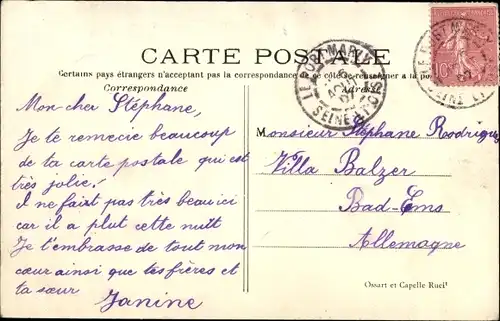 CARTE POSTALE
Certains pays étrangers n'acceptant pas la correspondance de ce côté se renseigner à la po
Correspondance
Adresse
Mon cher Stéphane,
Je te remecie beaucoup
de ta carte postale qui est
très jolie.
Il ne fait pas très beau ici
car il a plut cette nuit
Je t'embrasse de tout mon
cœur ainsi que tes frères et
ta sœur
Janine
Monsieur Stéphane Rodrigues
Villa Balzer
Bad-Ems
Allemagne
LE PORT MARLY
SEINE & OISE
07
10
SEINE ET
Ossart et Capelle Rueil